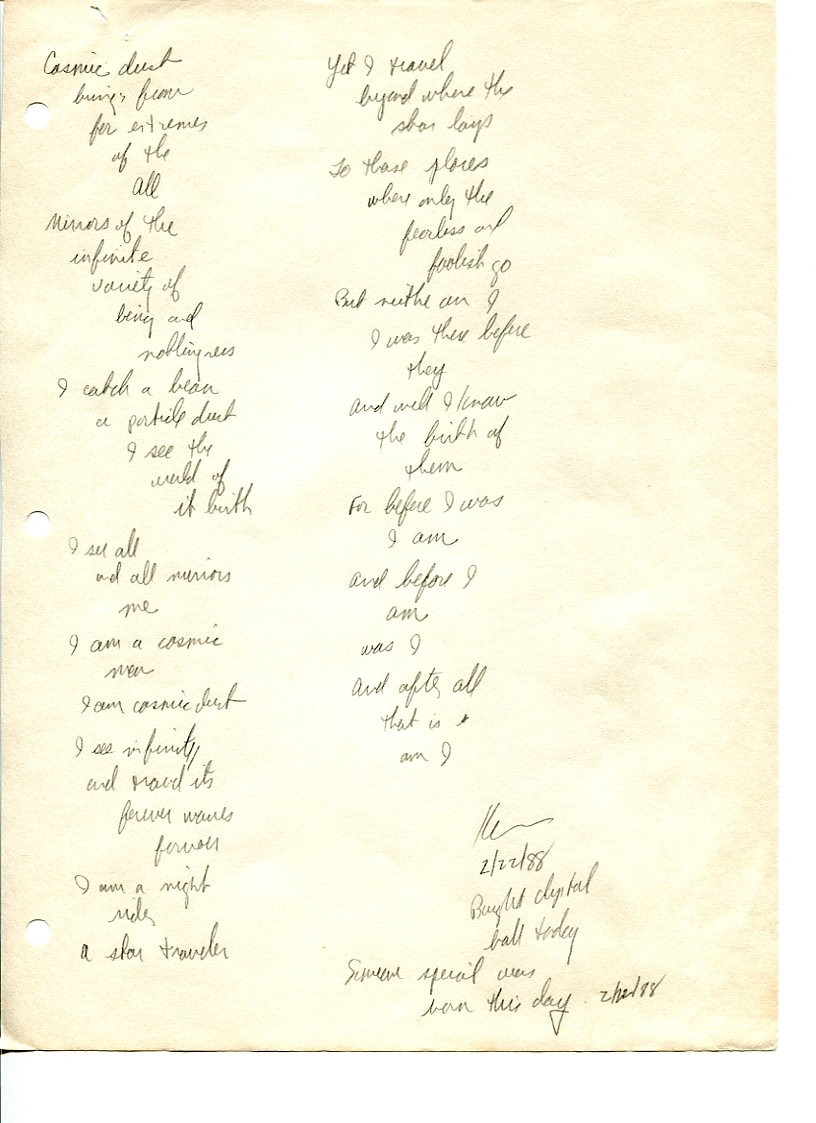 Cosmic dust
beings from
far extremes
of the
All
Mirrors of the
infinite
variety of
being and
nothingness
I catch a beam
a particle dust
I see the
world of
it birth
I see all
and all mirrors
me
I am a cosmic
man
I am cosmic dust
I see infinity
and travel its
forever waves
forever
I am a night
rider
a star traveler
Yet I travel
beyond where the
star lays
To those places
where only the
fearless and
foolish go
But neithe am I
I was there before
they
And well I know
the birth of
them
For before I was
I am
and before I
am
was I
And after all
that is
am I
2/22/88
Bought clystal
ball today
Someone special was
born this day. 2/22/88